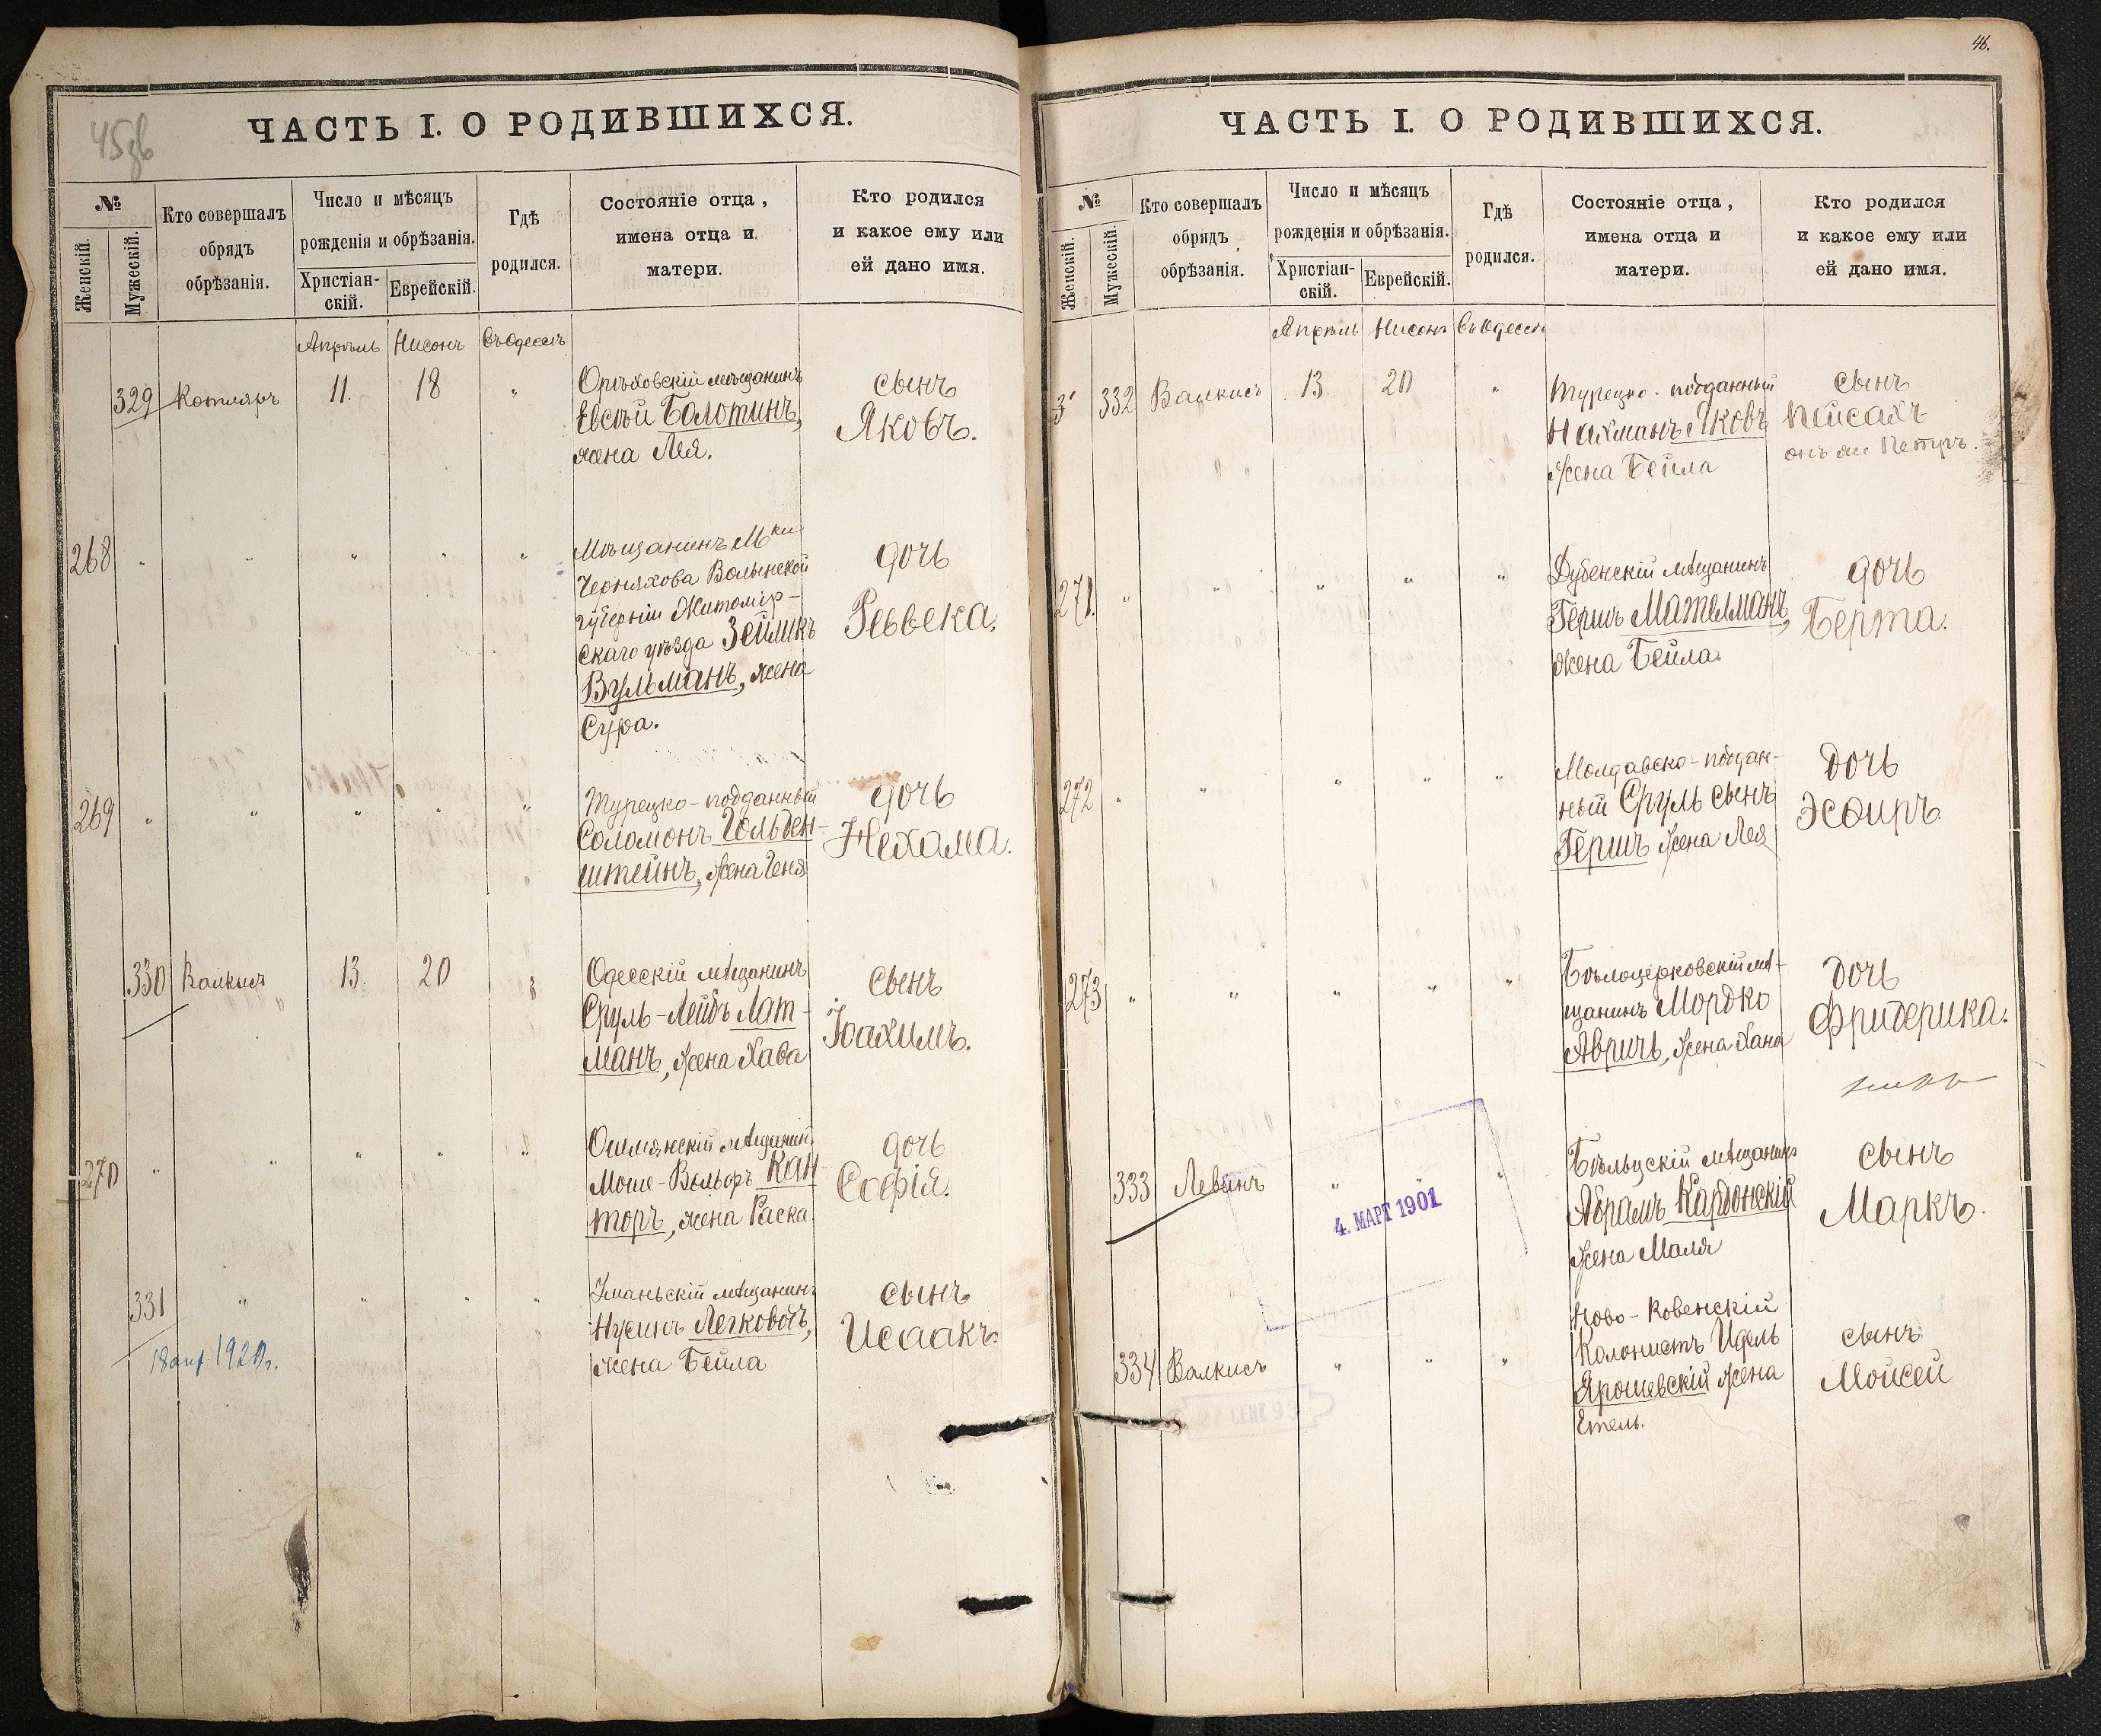 45 зв
ЧАСТЬ I. О РОДИВШИХСЯ.
№
Женскій.
Мужескій.
Кто совершалъ обрядъ обрѣзанія.
Число и мѣсяцъ рожденія и обрѣзанія.
Христіан-скій.
Еврейскій.
Гдѣ родился.
Состояніе отца, имена отца и матери.
Кто родился и какое ему или ей дано имя.
Апрѣль Нисонъ въ Одессѣ
329 Котляръ 11. 18 "
Орѣховскій мѣщанинъ
Евсѣй Болотинъ,
жена Лея.
сынъ
Яковъ.
268 " " " " "
Мѣщанинъ М ки
Черняхова Волынской
губерніи Житомір-
скаго уѣзда Зейликъ
Вульманъ, жена
Сура.
дочь
Ревека.
269 " " " " "
Турецко-подданный
Соломонъ Гольден-
штейнъ, жена Геня
дочь
Нехама.
330 Валкисъ 13. 20 "
Одесскій мѣщанинъ
Сруль-Лейбъ Лат-
манъ, жена Хава
сынъ
Іоахимъ.
270 " " " " "
Ошмянскій мѣщанин.
Моше-Вольфъ Кан-
торъ, жена Раска.
дочь
Софія.
331 " " " "
Уманьскій мѣщанинъ
Нусинъ Легководъ,
жена Бейла
сынъ
Исаакъ.
18 апр. 1920 г.
46.
ЧАСТЬ I. О РОДИВШИХСЯ.
№
Женскій.
Мужескій.
Кто совершалъ обрядъ обрѣзанія.
Число и мѣсяцъ рожденія и обрѣзанія.
Христіан-скій.
Еврейскій.
Гдѣ родился.
Состояніе отца, имена отца и матери.
Кто родился и какое ему или ей дано имя.
Апрѣль Нисонъ въ Одессѣ
332 Валкисъ 13. 20 "
Турецко-подданный
Нахманъ Яковъ
жена Бейла
сынъ
Пейсахъ
онъ же Петръ.
271. " " " " "
Дубенскій мѣщанинъ
Гершъ Мательманъ,
жена Бейла.
дочь
Берта.
272 " " " " "
Молдавско-поддан-
ный Сруль сынъ
Гершъ жена Лея
дочь
Эсѳирь.
273 " " " " "
Бѣлоцерковскій мѣ-
щанинъ Мордко
Авричъ, жена Хана
дочь
Фридерика.
333 Левинъ " " "
Бѣльцскій мѣщанинъ
Абрамъ Кардонскій
жена Маля
сынъ
Маркъ.
4. МАРТ 1901
334 Валкисъ " " "
Ново-Ковенскій
Колонистъ Идель
Ярошевскій жена
Етель.
сынъ
Мойсей